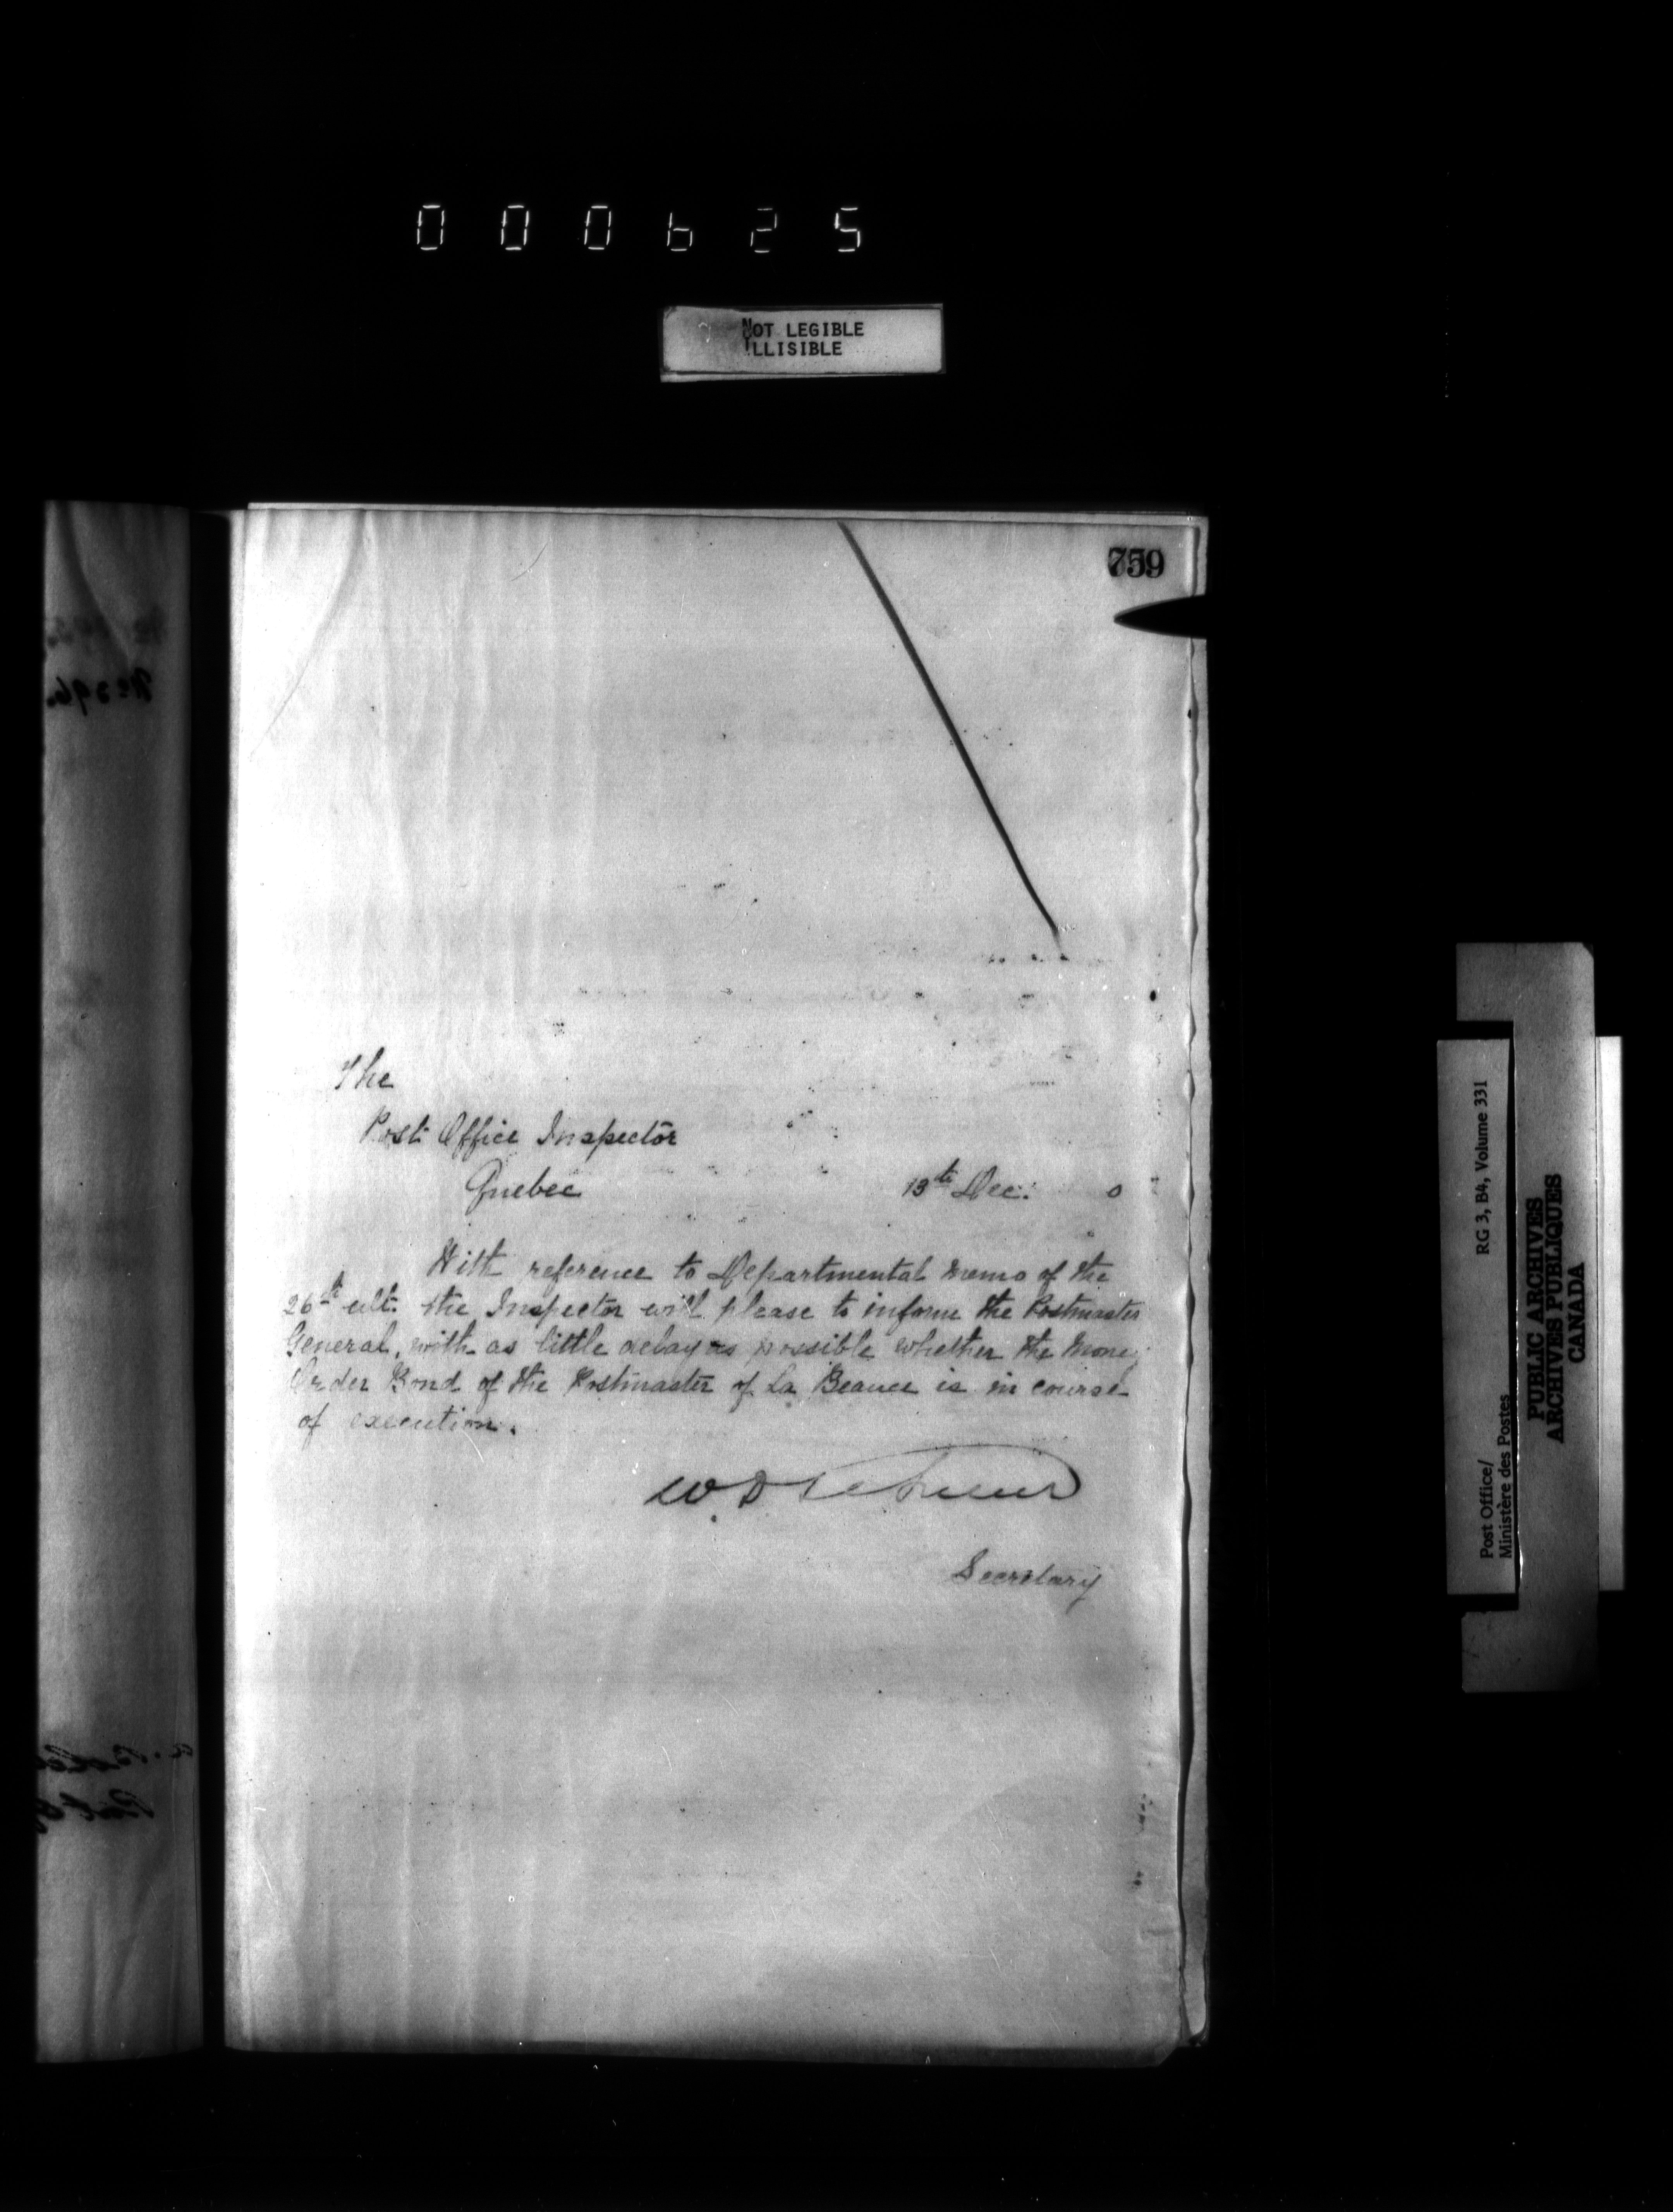 000625
NOT LEGIBLE
ILLISIBLE
759
The
Post Office Inspector
Quebec 13th Dec. 0
With reference to Departmental memo of the
26th ult. the Inspector will please to inform the Postmaster
General, with as little delay as possible whether the Money
Order Bond of the Postmaster of La Beauce is in course
of execution.
W D
Secretary
RG 3, B4, Volume 331
Post Office/
Ministère des Postes
PUBLIC ARCHIVES
ARCHIVES PUBLIQUES
CANADA